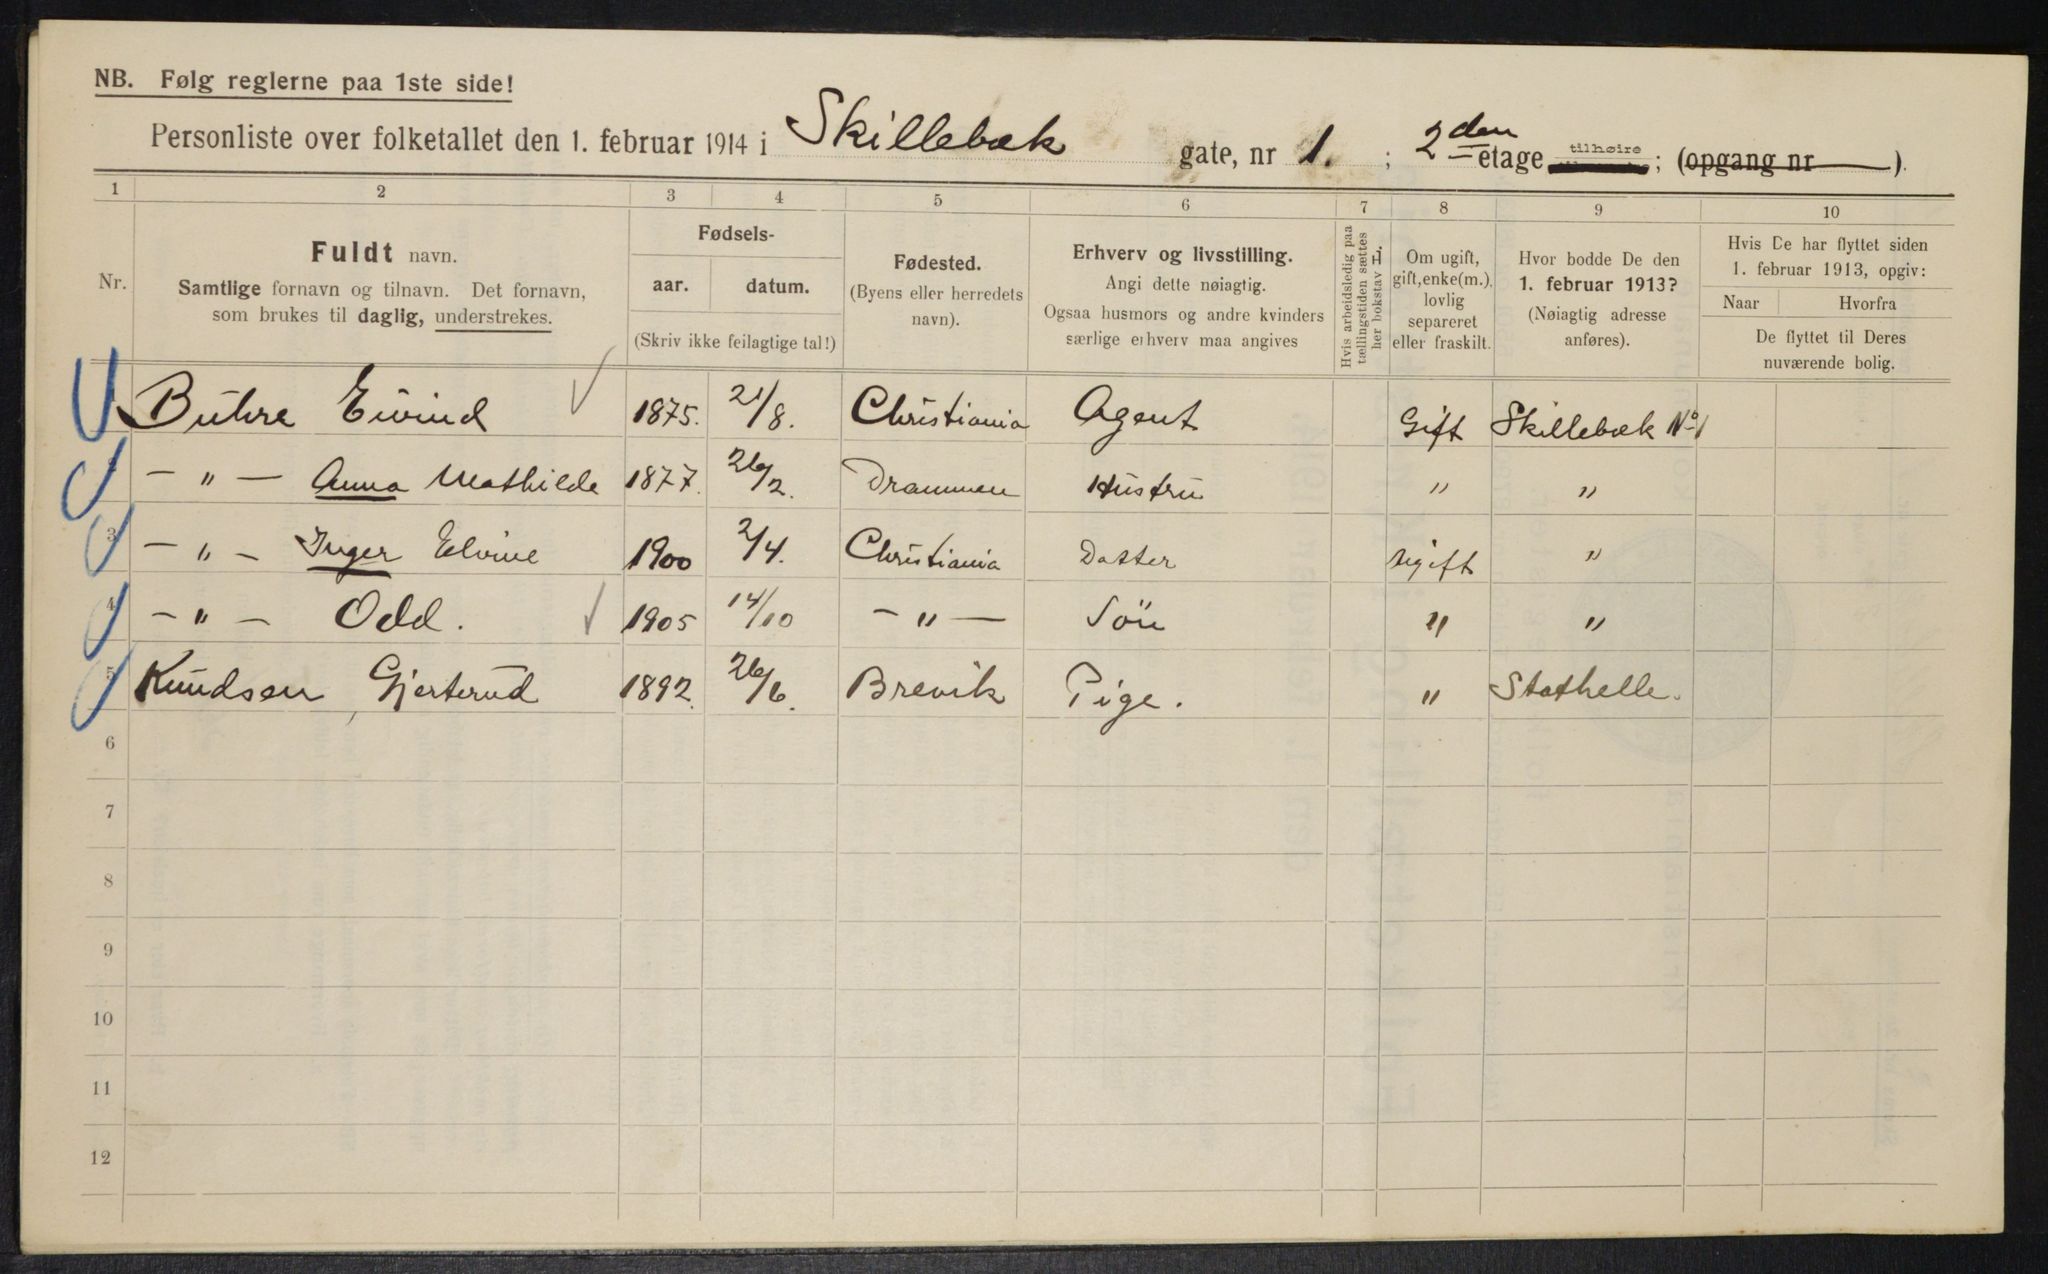 NB. Følg reglerne paa 1ste side!
Personliste over folketallet den 1. februar 1914 i Skillebæk gate, nr 1. ; 2den etage tilhøire ; (opgang nr ).
1 2 3 4 5 6 7 8 9 10
Nr.
Fuldt navn.
Samtlige fornavn og tilnavn. Det fornavn,
som brukes til daglig, understrekes.
Fødsels-
aar. datum.
(Skriv ikke feilagtige tal!)
Fødested.
(Byens eller herredets
navn).
Erhverv og livsstilling.
Angi dette nøiagtig.
Ogsaa husmors og andre kvinders
særlige erhverv maa angives
Hvis arbeidsledig paa
tællingstiden sættes
her bokstav L.
Om ugift,
gift, enke(m.),
lovlig
separeret
eller fraskilt.
Hvor bodde De den
1. februar 1913?
(Nøiagtig adresse
anføres).
Hvis De har flyttet siden
1. februar 1913, opgiv:
Naar Hvorfra
De flyttet til Deres
nuværende bolig.
Buhre Eivind 1875. 21/8. Christiania Agent Gift Skillebæk No 1
— " — Anna Mathilde 1877. 26/2. Drammen Hustru " "
3 — " — Inger Elvine 1900 2/4. Christiania Datter ugift "
4 — " — Odd. 1905 14/10 — " — Sön " "
5 Knudsen, Gjertrud 1892. 26/6. Brevik Pige. " Stathelle.
6
7
8
9
10
11
12